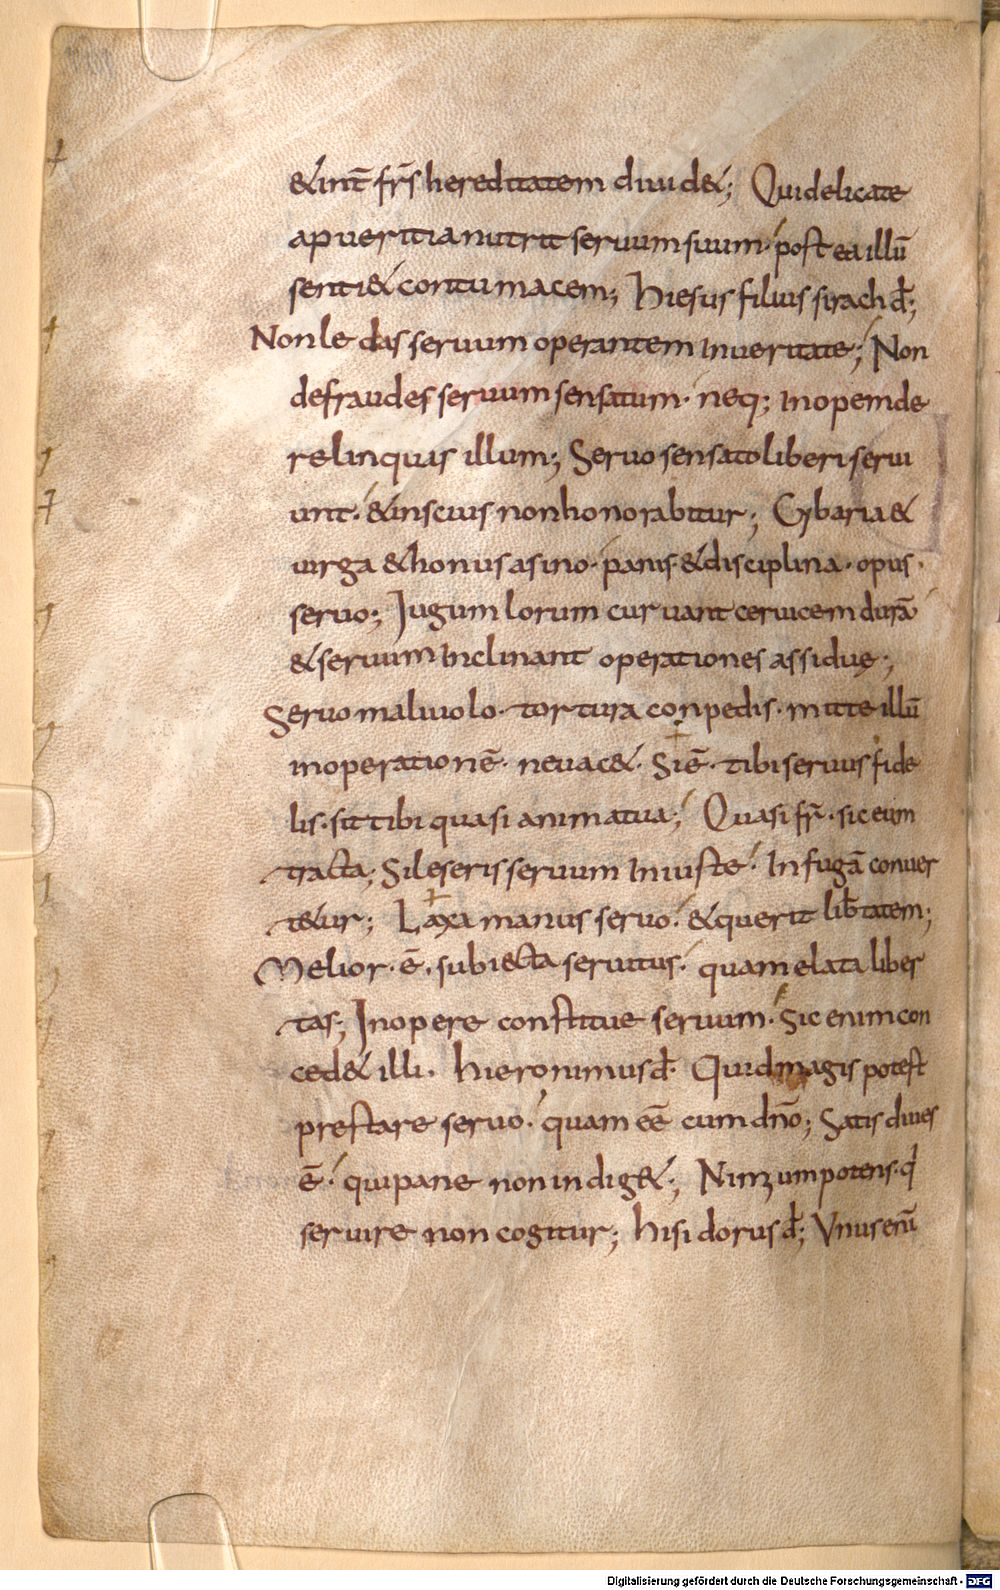 & int̄ fr̄s hereditatem diuid&; Qui delicate
a pueritia nutrit seruum suum· postea illū
senti& contumacem; Hiesus filius sirach d̄;
Non ledas seruum operantem in ueritate; Non
defraudes seruum sensatum· neq; inopem de
relinquas illum; Seruo sensato liberi serui
unt· & inscius non honorabitur; Cybaria &
uirga & honus asino· panis & disciplina· opus·
seruo; Jugum lorum curuant ceruicem durā
& seruum inclinant operationes assiduę;
Seruo maliuolo· tortura conpedis· mitte illū
in operationē· ne uac&· Si ē· tibi seruus fide
lis· sit tibi quasi anima tua; Quasi fr̄· sic eum
tracta; Si leseris seruum iniuste· In fugā conuer
t&ur; Laxa manus seruo· & querit lib̄tatem;
Melior· ē· subiecta seruitus· quam elata liber
tas; In opere constitue seruum· Sic enim con
ced& illi· hieronimus d̄· Quid magis potest
prestare seruo· quam eē cum dn̄o; Satis diues
ē· qui pane non indig&; Nimium potens· q
seruire non cogitur; hisidorus d̄; Vnus enī
Digitalisierung gefördert durch die Deutsche Forschungsgemeinschaft - DFG